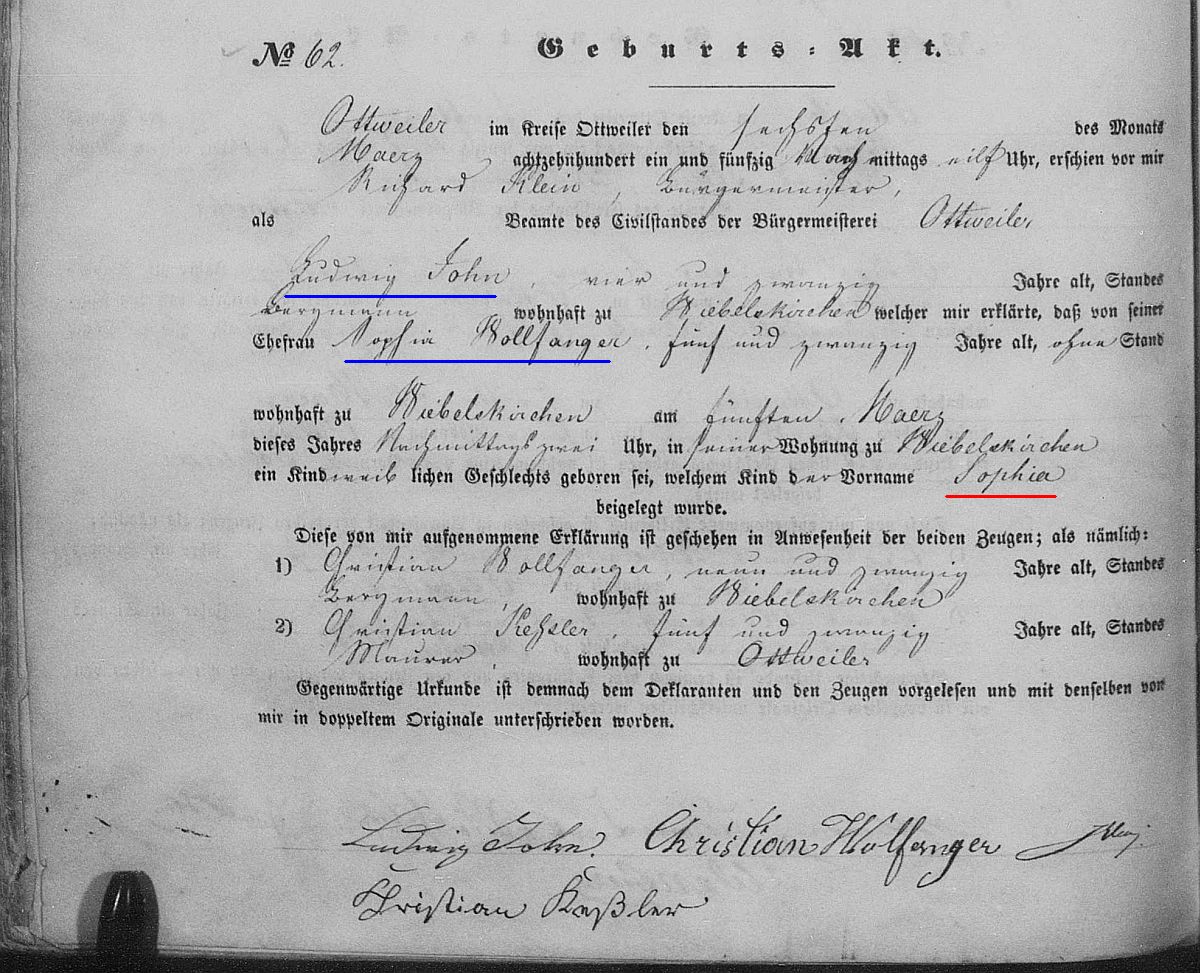 № 62. Geburts-Akt.
Ottweiler im Kreise Ottweiler den sechsten des Monats
Maerz achtzehnhundert ein und fünfzig Nachmittags eilf Uhr, erschien vor mir
Richard Klein, Bürgermeister,
als Beamte des Civilstandes der Bürgermeisterei Ottweiler,
Ludwig John, vier und zwanzig Jahre alt, Standes
Bergmann wohnhaft zu Wiebelskirchen welcher mir erklärte, daß von seiner
Ehefrau Sophia Wollfanger, fünf und zwanzig Jahre alt, ohne Stand
wohnhaft zu Wiebelskirchen am fünften Maerz
dieses Jahres Nachmittags zwei Uhr, in seiner Wohnung zu Wiebelskirchen
ein Kind weiblichen Geschlechts geboren sei, welchem Kind der Vorname Sophia
beigelegt wurde.
Diese von mir aufgenommene Erklärung ist geschehen in Anwesenheit der beiden Zeugen; als nämlich:
1) Christian Wollfanger, neun und zwanzig Jahre alt, Standes
Bergmann, wohnhaft zu Wiebelskirchen
2) Christian Keßler, fünf und zwanzig Jahre alt, Standes
Maurer, wohnhaft zu Ottweiler
Gegenwärtige Urkunde ist demnach dem Deklaranten und den Zeugen vorgelesen und mit denselben von
mir in doppeltem Originale unterschrieben worden.
Ludwig John. Christian Wolfanger
Christian Keßler